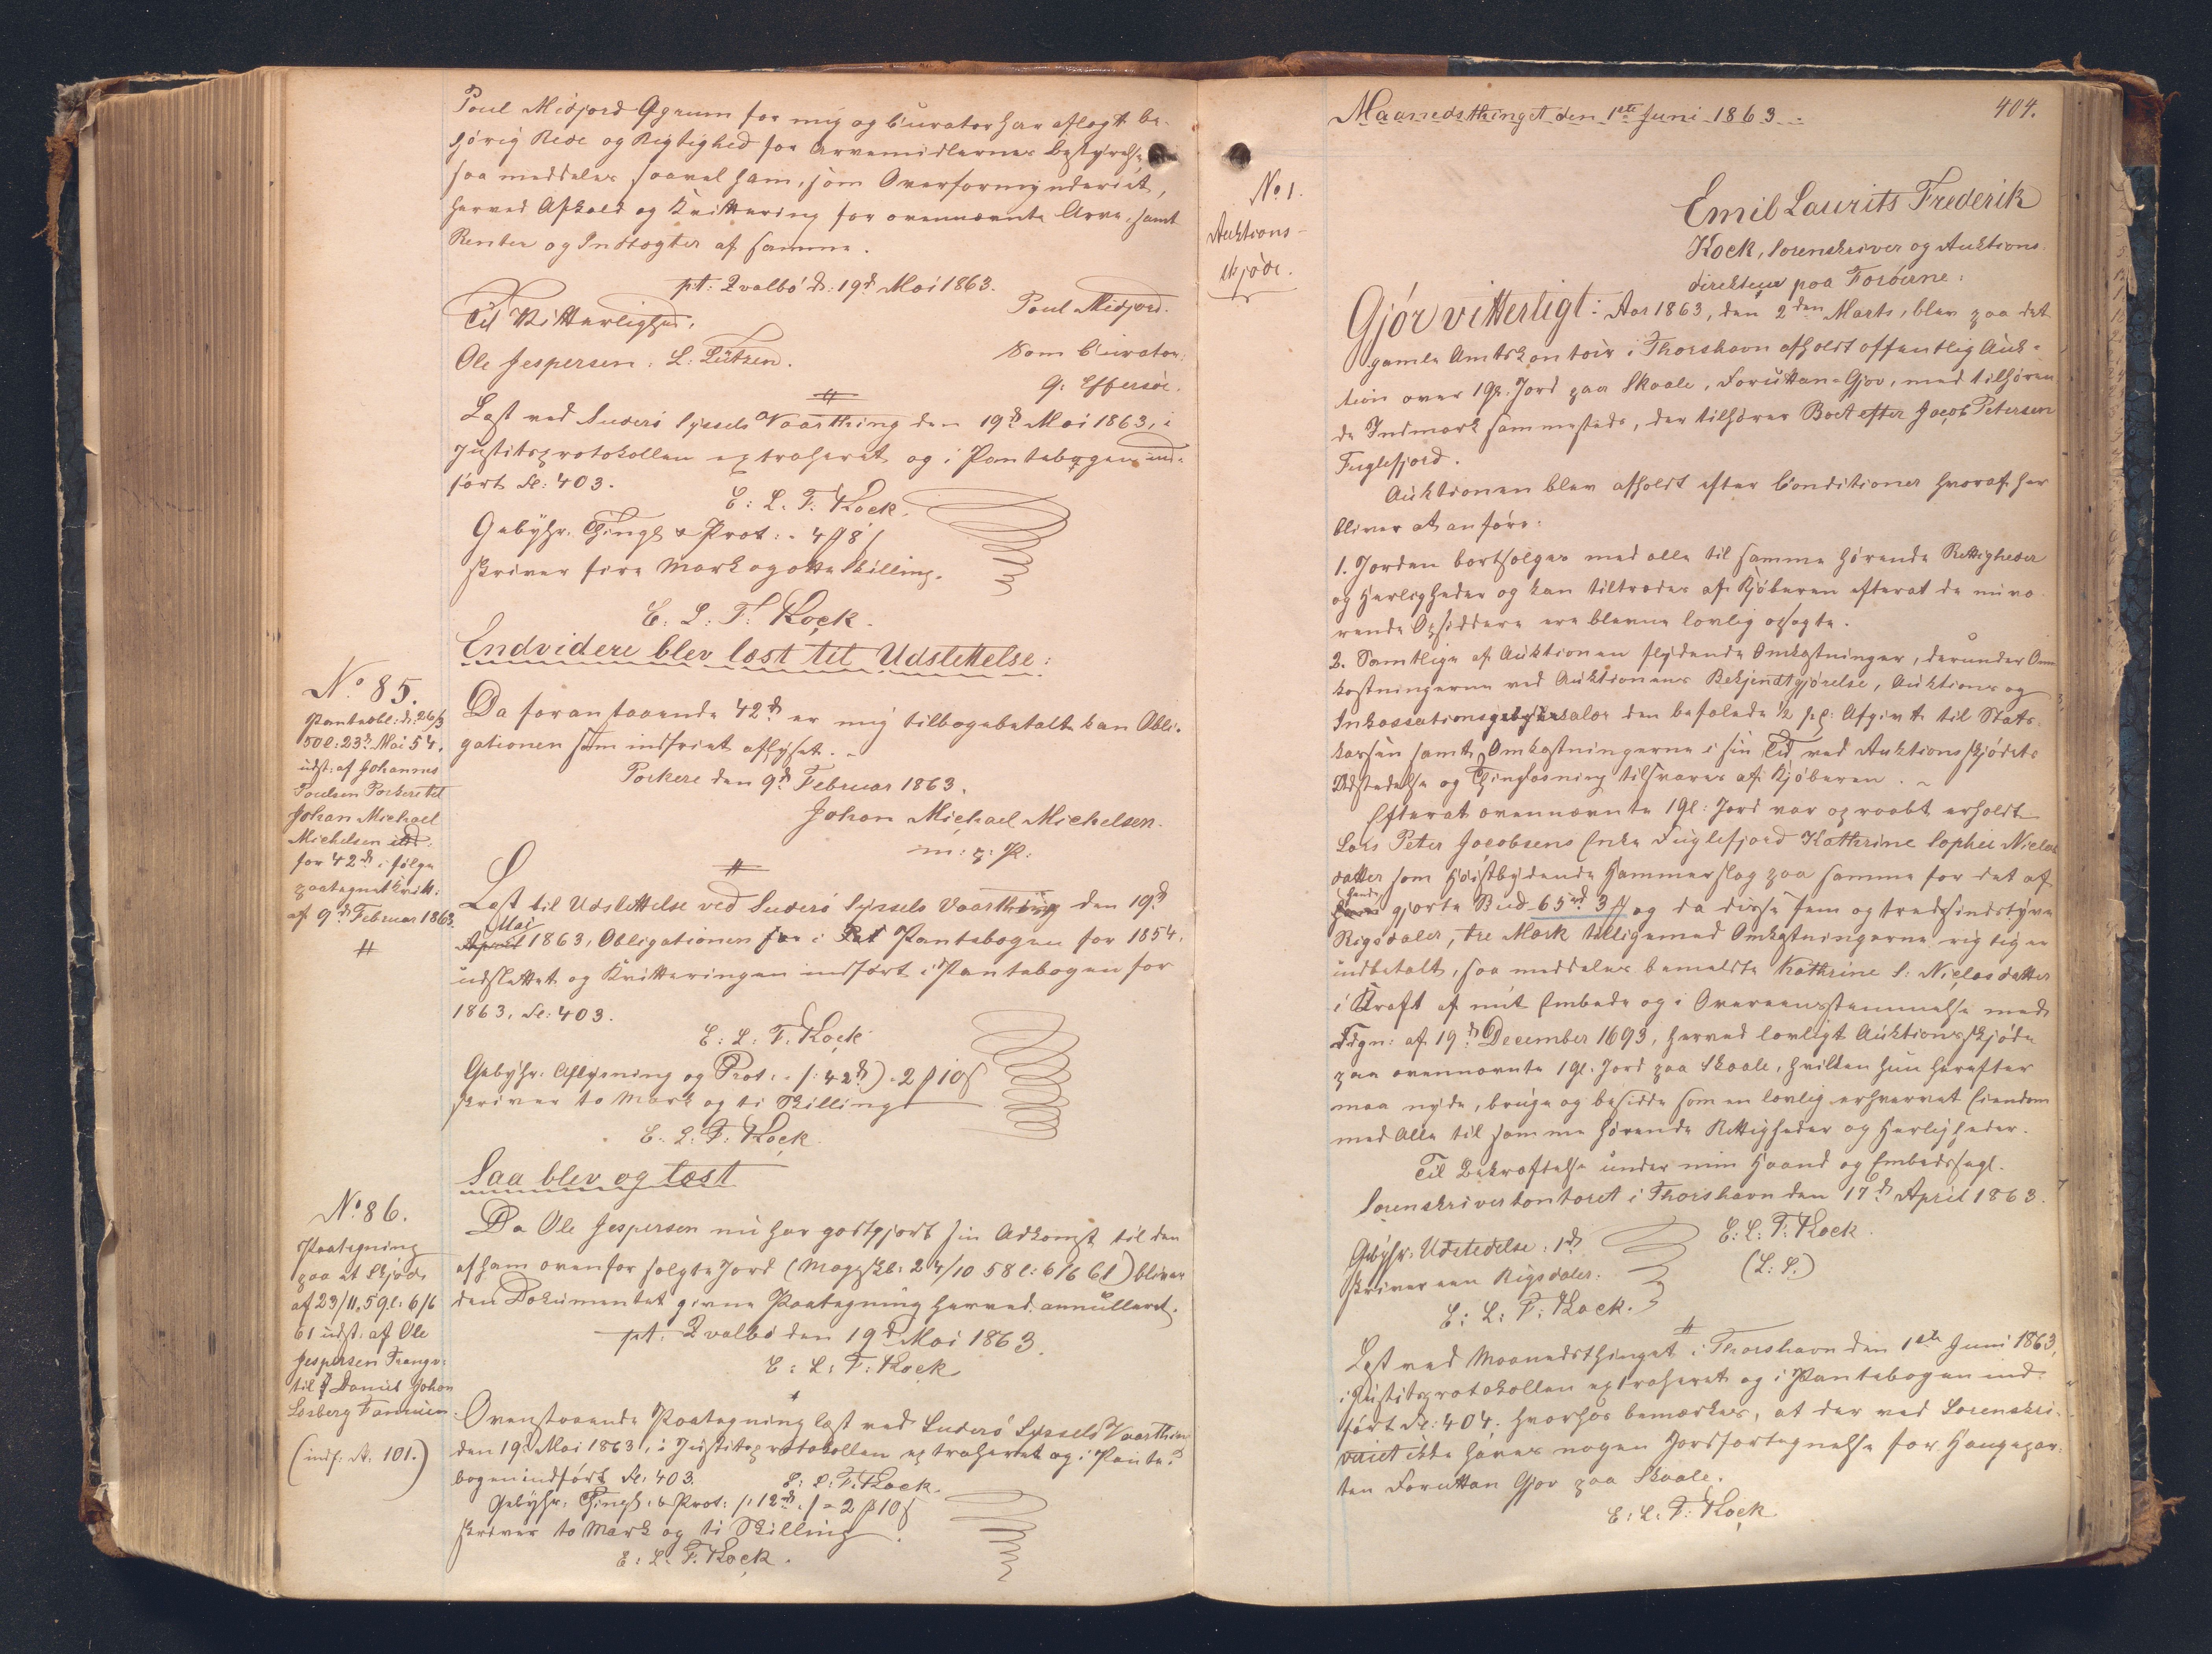 Poul Midjord Qgrum for mig og Curator har aflagt be-
hörig Rede og Rigtighed for Arvemidlernes Bestyrelse
saa meddeles saavel ham, som Overformynderiet,
herved Afkald og Kvittering for ovennævnte Arv, samt
Renter og Indtægter af samme.
pt: Qvalbö d: 19d Mai 1863.
Til Vitterlighed,
Poul Midjord.
Ole Jespersen. L: Lützen.
Som Curator:
G: Effersöe.
Læst ved Suderö Syssels Vaarthing den 19d Mai 1863, i
Justitsprotokollen extraheret og i Pantebogen ind-
fört Sc: 403.
E: L: F: Kock.
Gebyhr. Thingl & Prot: - 4 ₰ 8 ſ
skriver fire Mark og otte Skilling.
E: L: F: Kock.
Endvidere blev læst til Udslettelse:
No 85.
Panteobl: d: 26/3
50 l: 23d Mai 54.
udst: af Johannes
Poulsen Porkere til
Johan Michael
Michelsen
for 42d i fölge
paategnet Kvitt:
af 9d Februar 1863.
Da foranstaaende 42d er mig tilbagebetalt kan Obli-
gationen som indfriet aflyses.
Porkere den 9d Februar 1863.
Johan Michael Michelsen.
m: p: P:
Læst til Udslettelse ved Suderö Syssels Vaarthing den 19d
Mai
April 1863, Obligationen i Pantebogen for 1854.
udslettet og Kvitteringen indfört i Pantebogen for
1863, Sc: 403.
E: L: F: Kock
Gebyhr: Aflysning og Prot: (: 42d) - 2 ₰ 10 ſ
skriver to Mark og ti Skilling
E: L: F: Kock.
Saa blev og læst
No 86.
Paategning
paa et Skjöde
af 23/11. 59 l: 6/6
61 udst: af Ole
Jespersen Frangv:
til Daniel Johan
Løsberg Famien.
(indf: Sc: 101.)
Da Ole Jespersen nu har godtgjort sin Adkomst til den
af ham ovenfor solgte Jord (Mageskl: 24/10 58 l: 6/6 61) bliver
den Dokumentet givne Paategning herved annulleret.
pt. Qvalbö den 19d Mai 1863.
E: L: F: Kock
Ovenstaaende Paategning læst ved Suderö Syssels Vaarthing
den 19d Mai 1863, i Justitsprotokollen extraheret og i Pante-
bogen indfört Sc: 403.
E: L: F: Kock.
Gebyhr: Thingl: & Prot: (: 12d.) = 2 ₰ 10 ſ
skriver to Mark og ti Skilling.
E: L: F: Kock.
Maanedsthinget den 1ste Juni 1863.
404.
No 1.
Auktions-
skjöde.
Emil Laurits Frederik
Kock, Sorenskriver og Auktions-
direkteur paa Færöerne:
Gjör vitterligt: Aar 1863, den 2den Marts, blev paa det
gamle Amtskontoir i Thorshavn afholdt offentlig Auk-
tion over 1gl. Jord paa Skaale, Foruttan-Gjov, med tilhören-
de Indmark sammesteds, der tilhörer Boet efter Jacob Petersen
Fuglefjord.
Auktionen blev afholdt efter Conditioner hvoraf her
bliver at anföre:
1. Jorden bortsælges med alle til samme hörende Rettigheder
og Herligheder og kan tiltrædes af Kjöberen efterat de nuvæ-
rende Opsiddere ere blevne lovlig opsagte.
2. Samtlige af Auktionen flydende Omkostninger, derunder Om-
kostningerne ved Auktionens Bekjendtgjörelse, Auktions og
Inkassationsgebyhr den befalede ½ pC: Afgivt til Stats-
kassen samt Omkostningerne i sin Tid ved Auktionsskjödets
Udstedelse og Thinglæsning tilsvares af Kjöberen.
Efterat ovennævnte 1gl: Jord var opraabt erholdt
Lars Peter Jacobsens Enke Fuglefjord Kathrine Sophie Niclas
datter som höistbydende Hammerslag paa samme for det af
hende
gjorte Bud 65rd 3₰ og da disse fem og tredsindstyve
Rigsdaler, tre Mark tilligemed Omkostningerne rigtig er
indbetalt, saa meddeles bemeldte Kathrine S: Niclasdatter
i Kraft af mit Embede og i Overeensstemmelse med
Fdgn: af 19d December 1693, herved lovligt Auktionsskjöde
paa ovennævnte 1gl. Jord paa Skaale, hvilken hun herefter
maa nyde, bruge og besidde som en lovlig erhvervet Eiendom
med Alle til samme hörende Rettigheder og Herligheder.
Til Bekræftelse under min Haand og Embedssegl.
Sorenskriverkontoret i Thorshavn den 17d April 1863.
E: L: F: Kock.
(L: S.)
Gebyhr: Udstedelse: 1d
skriver een Rigsdaler.
E: L: F: Kock.
Læst ved Maanedsthinget i Thorshavn den 1ste Juni 1863,
i Justitsprotokollen extraheret og i Pantebogen ind-
fört Sc: 404. hvorhos bemærkes, at der ved Sorenskri-
veriet ikke haves nogen Jordfortegnelse for Haugepar-
ten Foruttan Gjov paa Skaale.
E: L: F: Kock